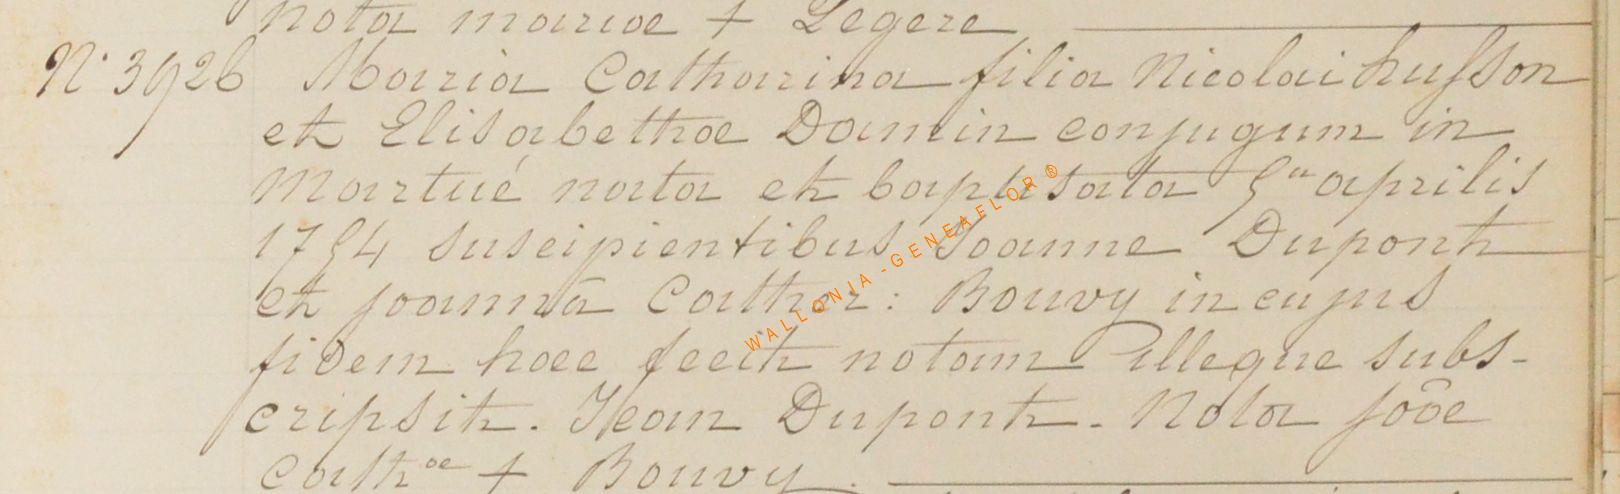 nota mariae + Legere
N. 3926 Maria Catharina filia Nicolai husson
et Elisabethae Damin conjugum in
Martué nata et baptisata 5a aprilis
1754 suscipientibus Joanne Dupont
et joannâ Cather: Bouvy in cujus
fidem haec fecit notam illeque subs-
cripsit. Jean Dupont. Nota jôae
Cathae + Bouvy.
WALLONIA - GENEAFLOR ®